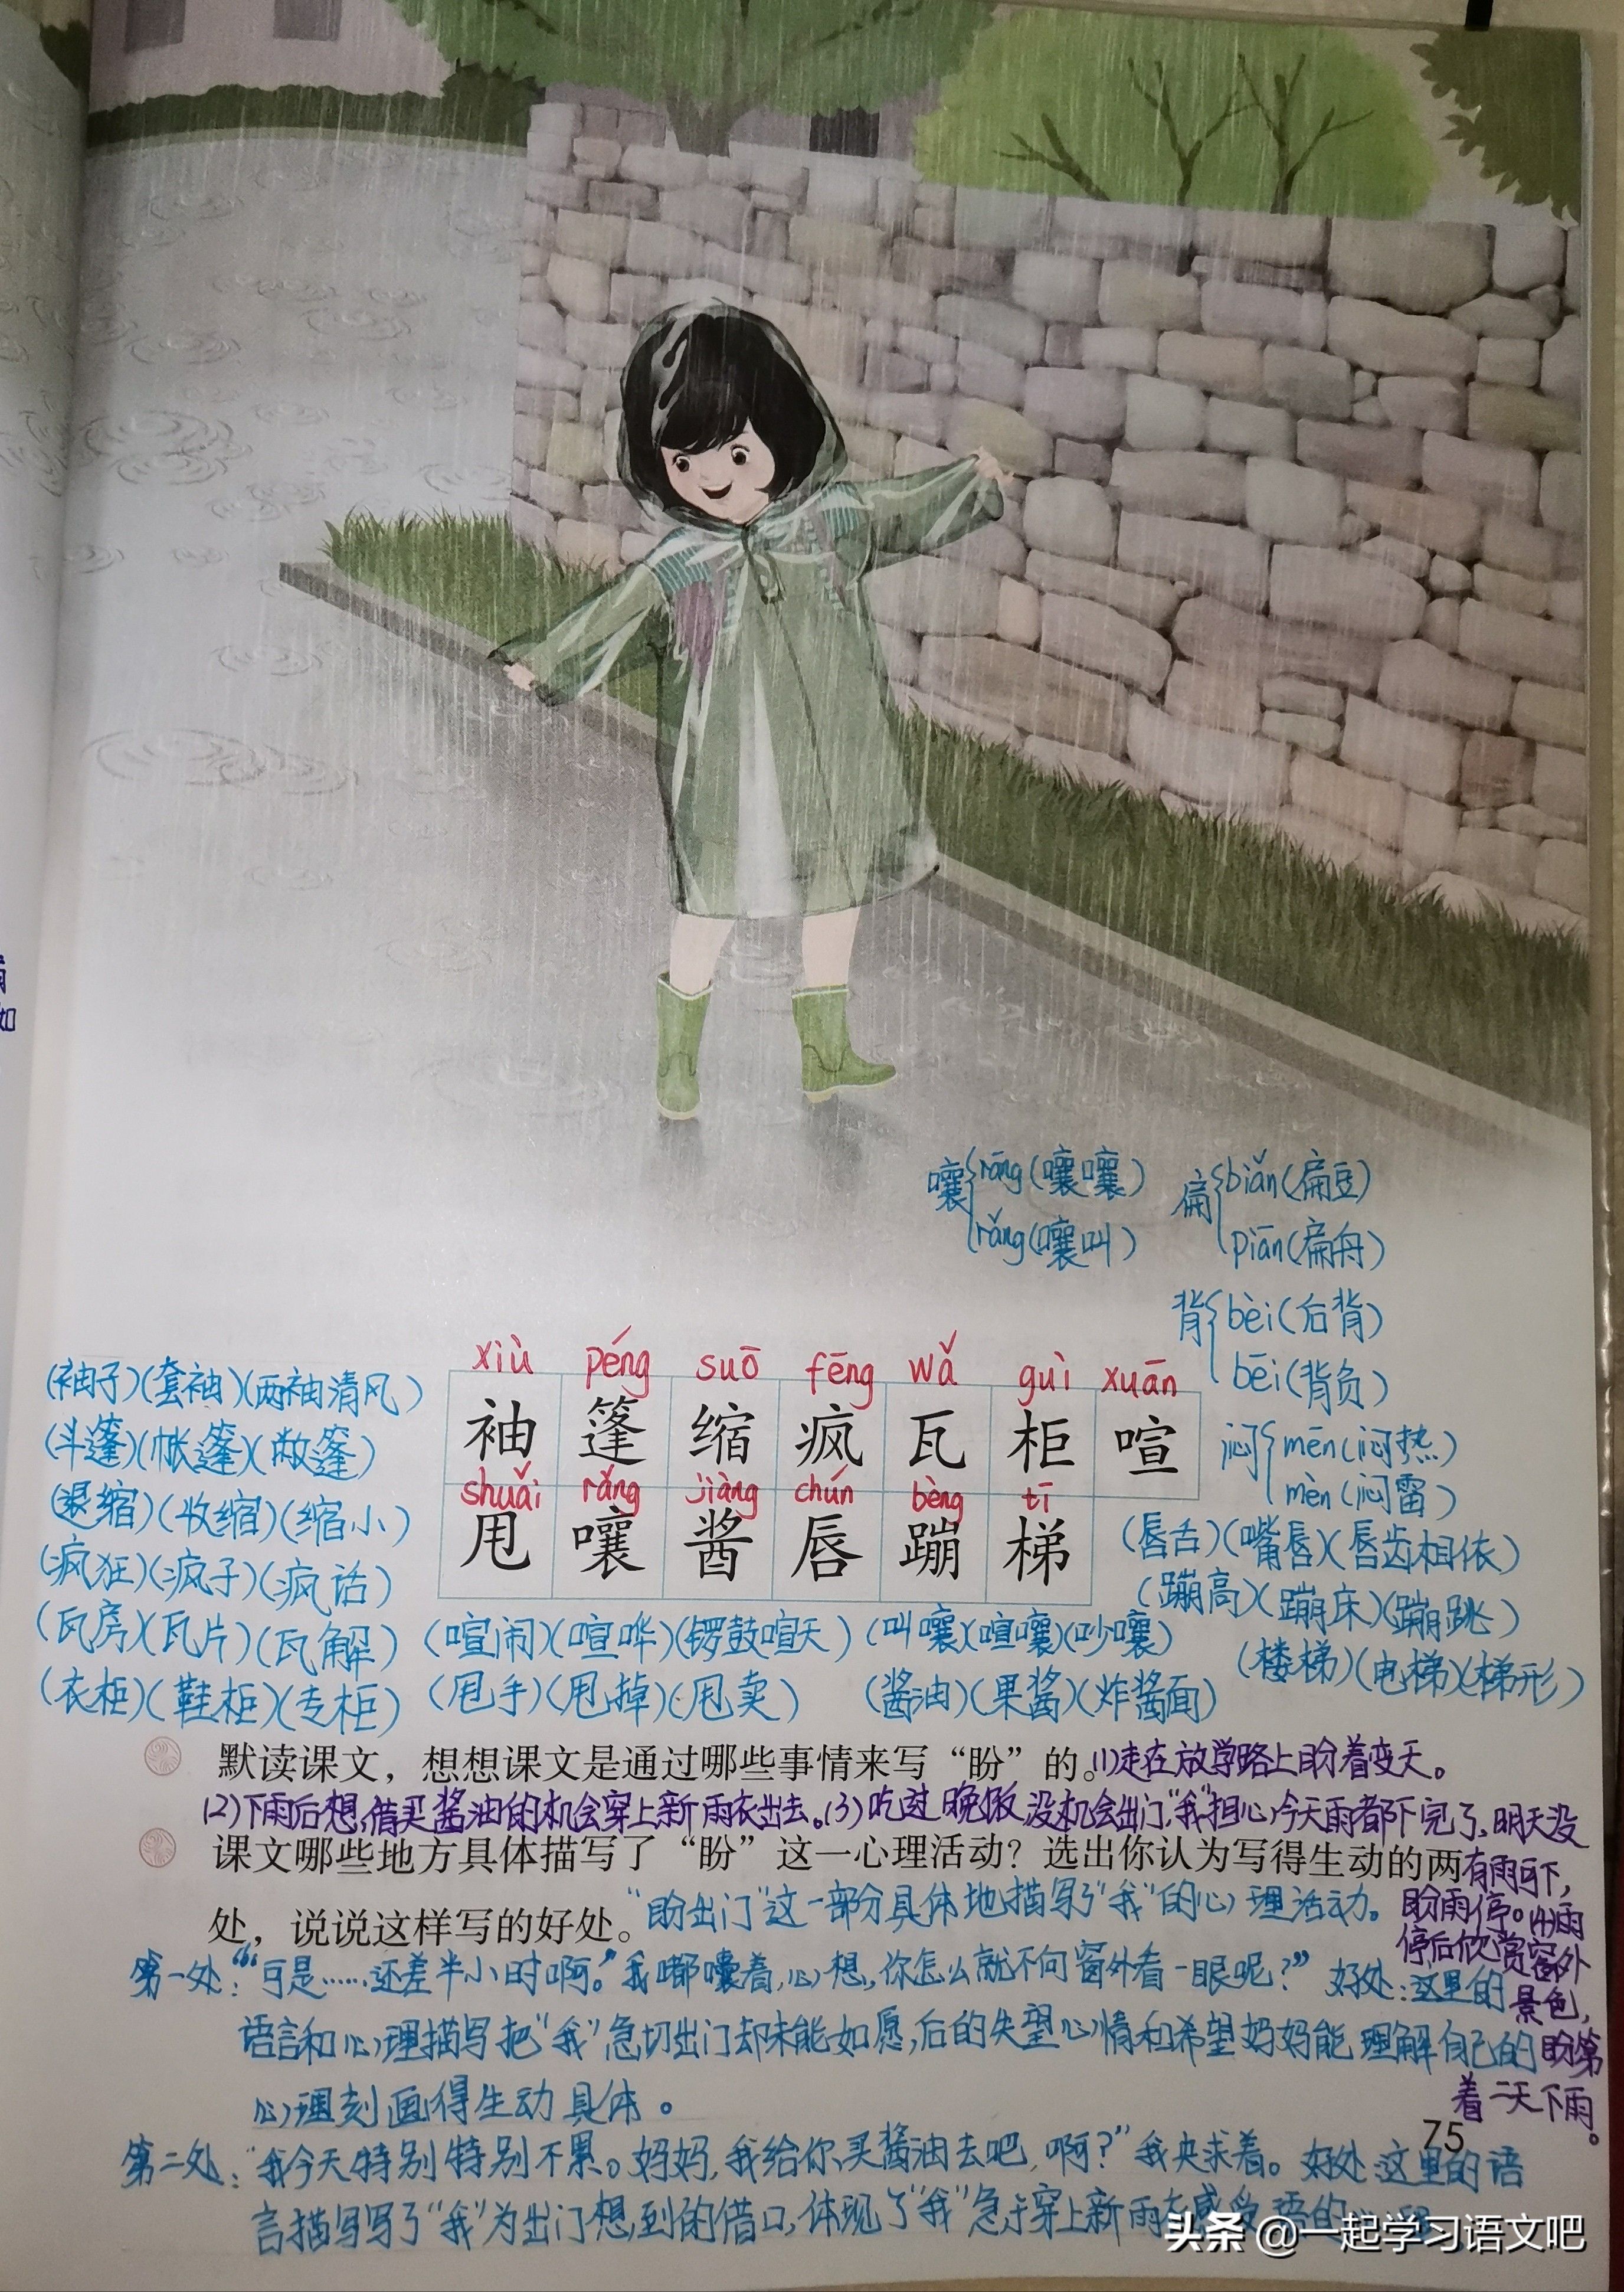 雨
如
嚷 rāng(嚷嚷) 扁 biǎn(扁豆)
rǎng(嚷叫) piān(扁舟)
背 bèi(后背)
bēi(背负)
xiù péng suō fēng wǎ guì xuān
(袖子)(套袖)(两袖清风)
袖 篷 缩 疯 瓦 柜 喧
(斗篷)(帐篷)(敞篷)
闷 mēn(闷热)
mèn(闷雷)
shuǎi rǎng jiàng chún bèng tī
(退缩)(收缩)(缩小)
甩 嚷 酱 唇 蹦 梯
(唇舌)(嘴唇)(唇齿相依)
(疯狂)(疯子)(疯话)
(蹦高)(蹦床)(蹦跳)
(瓦房)(瓦片)(瓦解) (喧闹)(喧哗)(锣鼓喧天) (叫嚷)(喧嚷)(吵嚷)
(楼梯)(电梯)(梯形)
(衣柜)(鞋柜)(专柜) (甩手)(甩掉)(甩卖) (酱油)(果酱)(炸酱面)
默读课文，想想课文是通过哪些事情来写“盼”的。(1)走在放学路上盼着变天。
(2)下雨后想借买酱油的机会穿上新雨衣出去。(3)吃过晚饭没机会出门，“我”担心今天雨都下完了，明天没
课文哪些地方具体描写了“盼”这一心理活动？选出你认为写得生动的两
有雨可下，
处，说说这样写的好处。“盼出门”这一部分具体地描写了“我”的心理活动。
盼雨停。(4)雨
停后欣赏窗外
景色，
盼第
着二天下雨。
第一处：“‘可是……还差半小时啊。’我嘟囔着，心想，你怎么就不向窗外看一眼呢？”好处：这里的
语言和心理描写把“我”急切出门却未能如愿，后的失望心情和希望妈妈能理解自己的
心理刻画得生动具体。
75
第二处：“我今天特别特别不累。妈妈，我给你买酱油去吧，啊？”我央求着。好处：这里的语
言描写写了“我”为出门想到的借口，体现了“我”急于穿上新雨衣感受雨的
头条 @一起学习语文吧